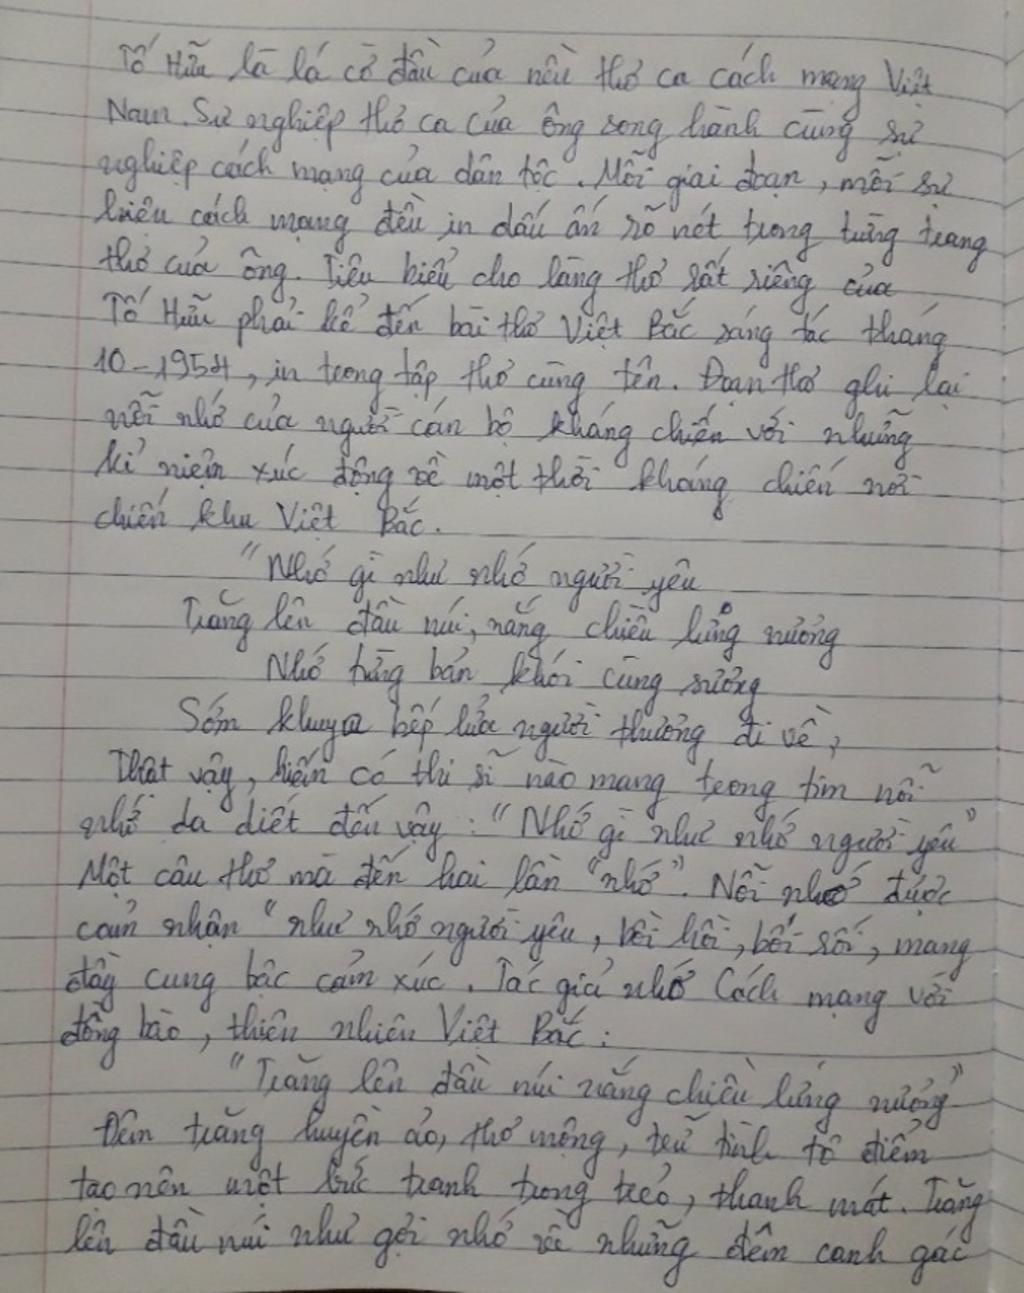 Tố Hữu là lá cờ đầu của nền thơ ca cách mạng Việt
Nam. Sự nghiệp thơ ca của ông song hành cùng sự
nghiệp cách mạng của dân tộc. Mỗi giai đoạn, mỗi sự
kiện cách mạng đều in dấu ấn rõ nét trong từng trang
thơ của ông. Tiêu biểu cho làng thơ rất riêng của
Tố Hữu phải kể đến bài thơ Việt Bắc sáng tác tháng
10-1954, in trong tập thơ cùng tên. Đoạn thơ ghi lại
nỗi nhớ của người cán bộ kháng chiến với những
kỉ niệm xúc động về một thời kháng chiến nơi
chiến khu Việt Bắc.
"Nhớ gì như nhớ người yêu
Trăng lên đầu núi, nắng chiều lưng nương
Nhớ từng bản khói cùng sương
Sớm khuya bếp lửa người thương đi về,
Thật vậy, hiếm có thi sĩ nào mang trong tim nỗi
nhớ da diết đến vậy: "Nhớ gì như nhớ người yêu"
Một câu thơ mà đến hai lần "nhớ". Nỗi nhớ được
cảm nhận "như nhớ người yêu, bồi hồi, bối rối, mang
đầy cung bậc cảm xúc. Tác giả nhớ Cách mạng với
đồng bào, thiên nhiên Việt Bắc:
"Trăng lên đầu núi nắng chiều lưng nương"
Đêm trăng huyền ảo, thơ mộng, trữ tình tô điểm
tạo nên một bức tranh trong trẻo, thanh mát. Trăng
lên đầu núi như gợi nhớ về những đêm canh gác